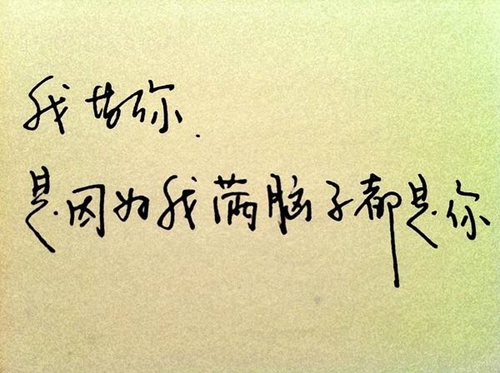 我你.
是因为我满脑子都是你